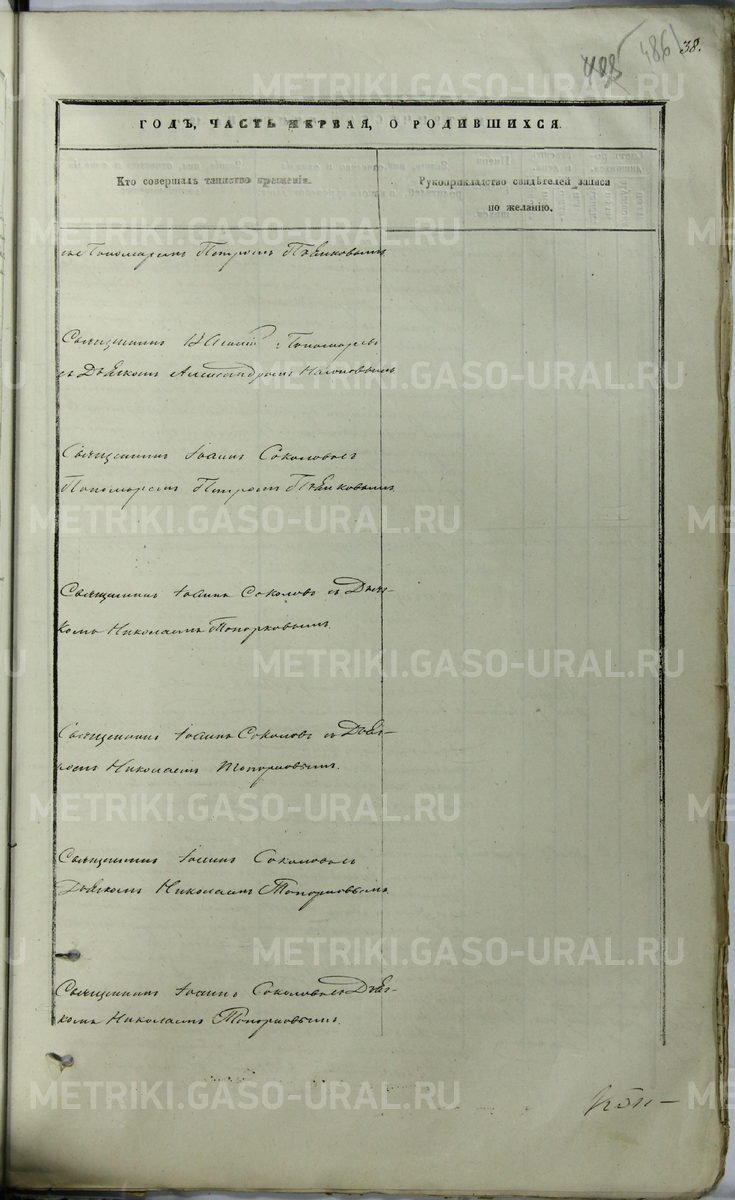 486 38.
ГОДЪ, ЧАСТЬ ПЕРВАЯ, О РОДИВШИХСЯ.
Кто совершалъ таинство крещенія.
Рукоприкладство свидѣтелей записи
по желанію.
Пономаремъ Петромъ
Священникъ Пономаревъ
съ Дьячкомъ Александромъ
Священникъ Іоаннъ Соколовъ съ
Пономаремъ Петромъ
Священникъ Іоаннъ Соколовъ съ Дьяч-
комъ Николаемъ Топорковымъ.
Священникъ Іоаннъ Соколовъ съ Дьяч-
комъ Николаемъ Топорковымъ.
Священникъ Іоаннъ Соколовъ съ
Дьячкомъ Николаемъ Топорковымъ.
Священникъ Іоаннъ Соколовъ съ Дьяч-
комъ Николаемъ Топорковымъ.
METRIKI.GASO-URAL.RU